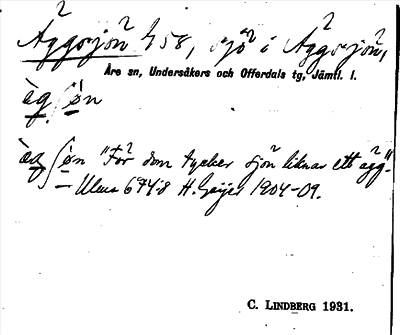 Äggsjön 458, sjö i Äggsjön,
Åre sn, Undersåkers och Offerdals tg, Jämtl. l.
ɛ̀gʃø̀n
ɛ̀gʃøn "För dom tycker sjön liknar ett ägg"
— Ulma 694:8 H. Geijer 1904-09.
C. LINDBERG 1931.